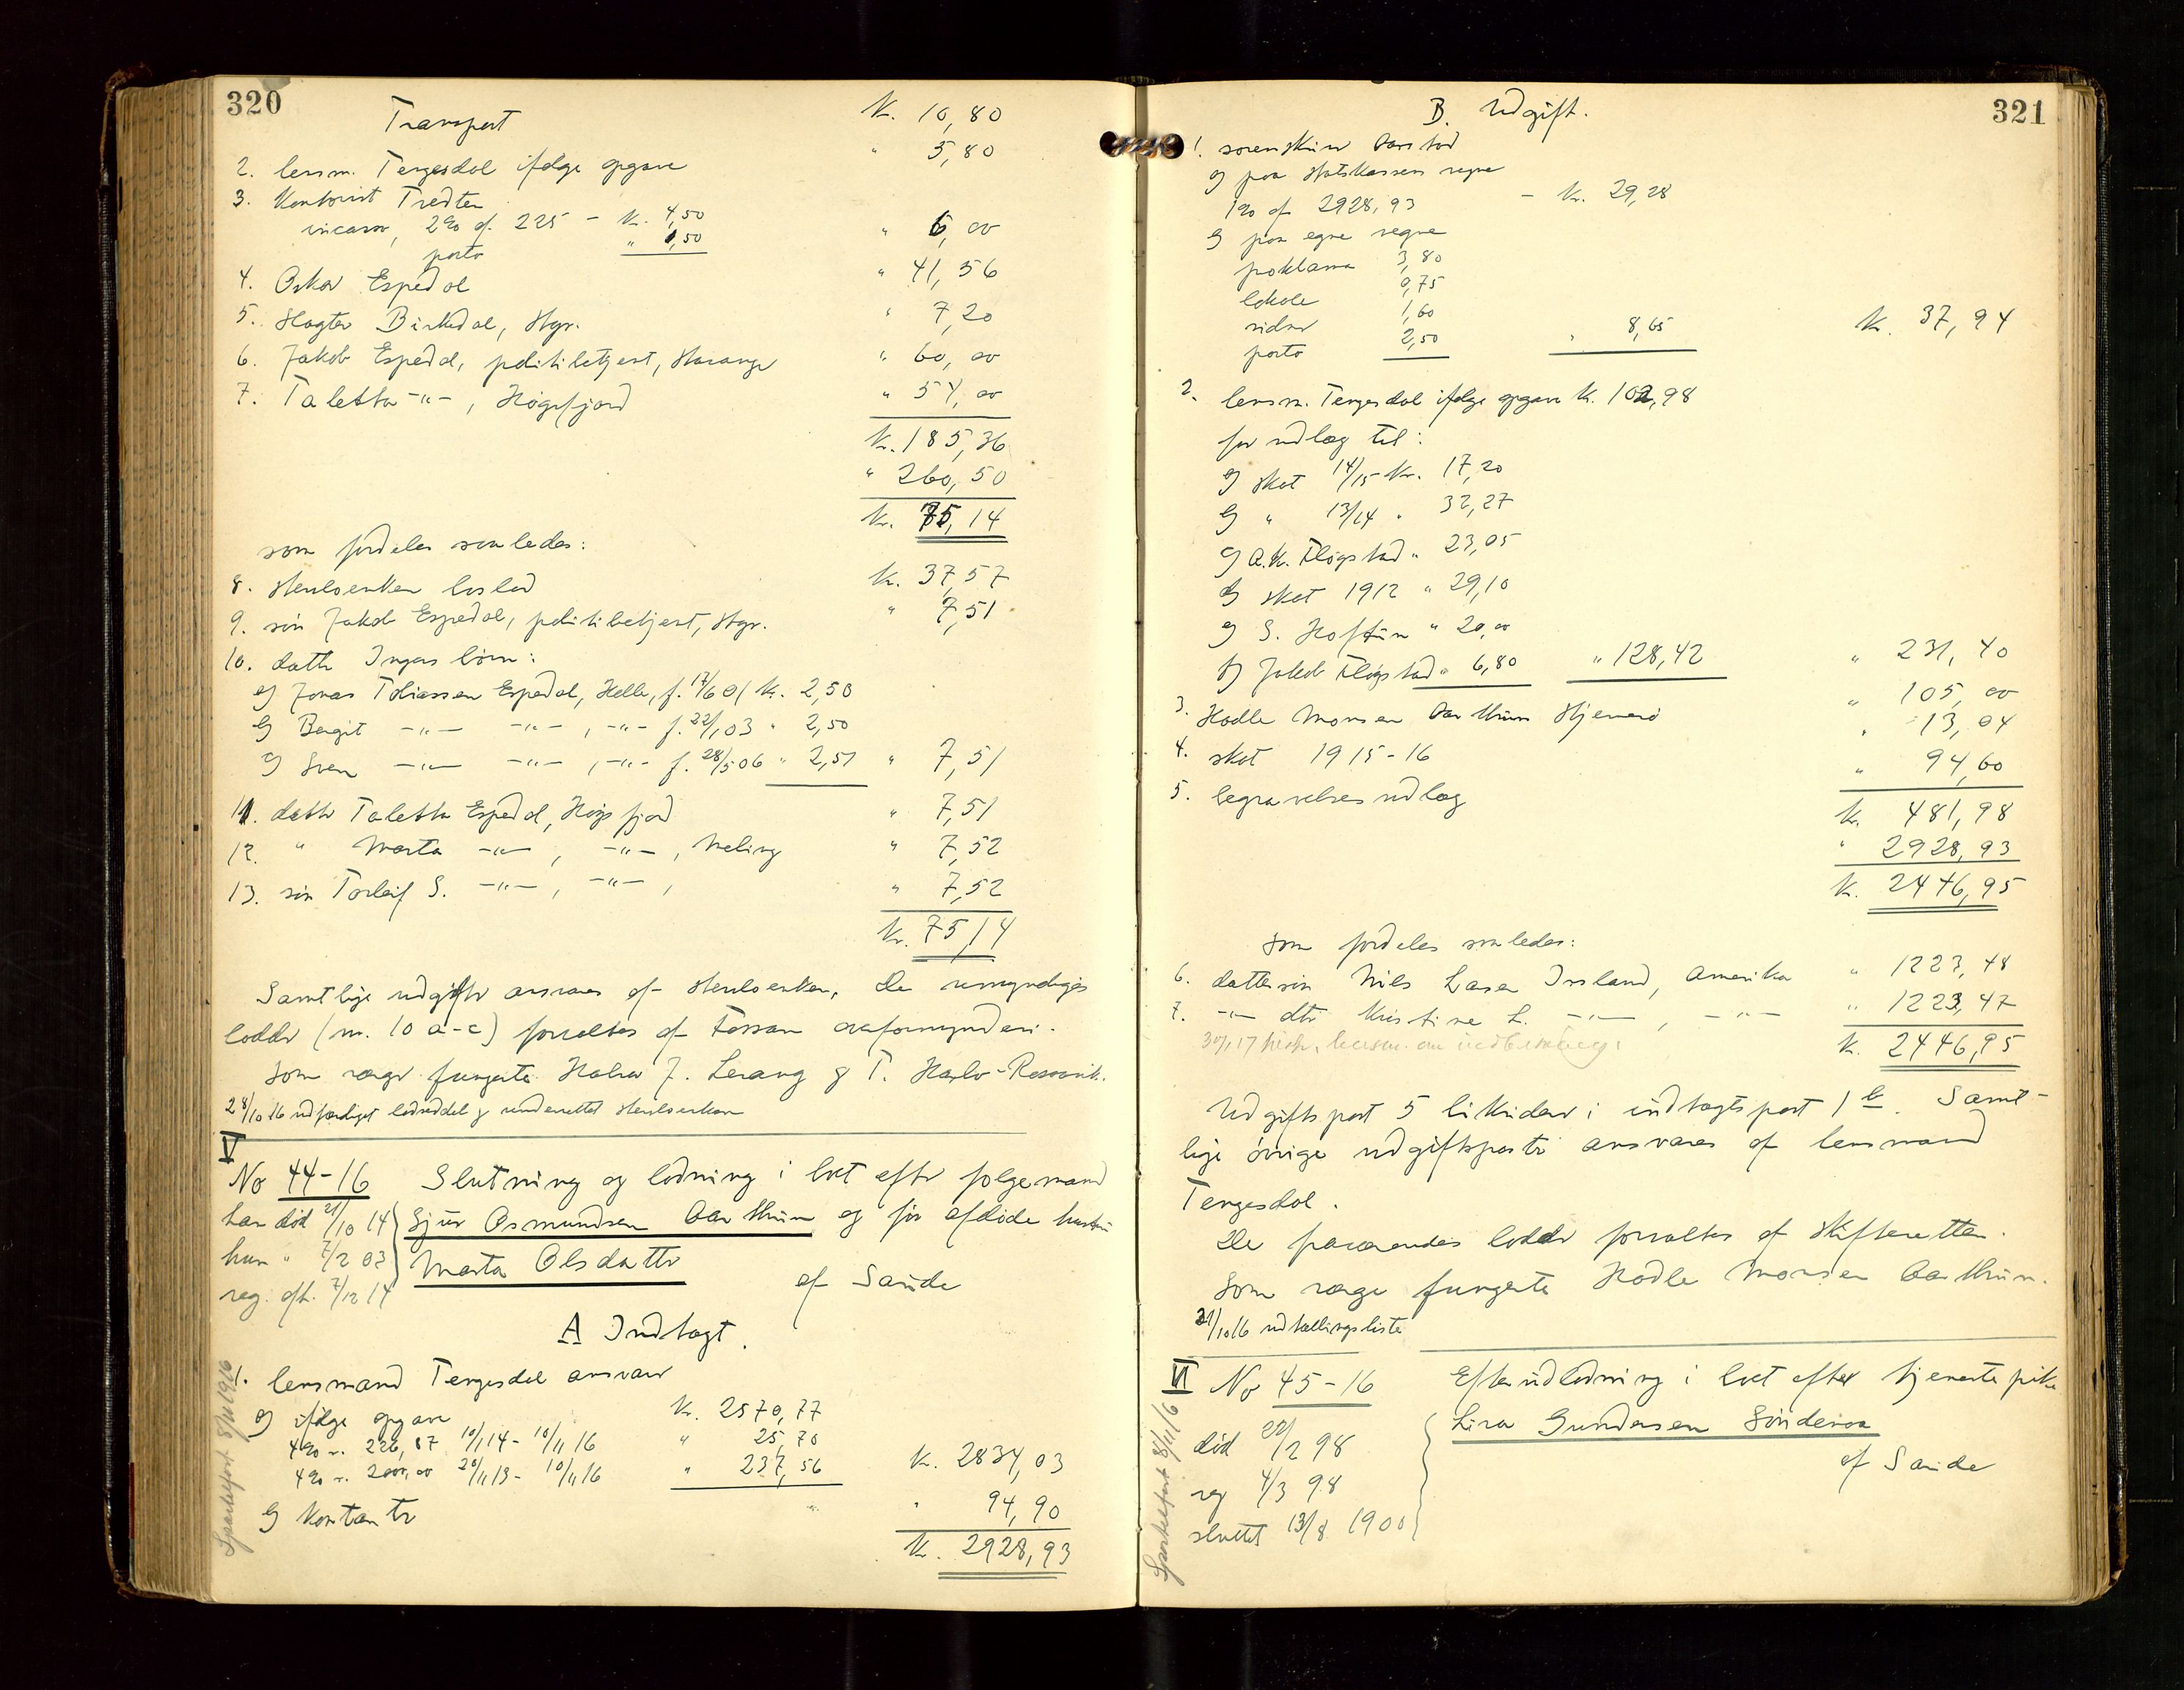 320
Transport Kr. 10,80
2. lensm. Tengesdal ifølge opgave " 5,80
3. Kontorist Tredten
incasso, 2% af 225 - Kr. 4,50
porto " 1,50 " 6,00
4. Oskar Espedal " 41,56
5. Slagter Birkedal, Stgr. " 7,20
6. Jakob Espedal, politibetjent, Stavanger " 60,00
7. Taletta -"- , Høgsfjord " 54,00
Kr. 185,36
" 260,50
Kr. 75,14
som fordeles saaledes:
8. Stervboenken boslod Kr. 37,57
9. søn Jakob Espedal, politibetjent, Stgr. " 7,51
10. datter Ingas børn:
a) Jonas Tobiassen Espedal, Helle, f. 17/6 01 Kr. 2,50
b) Bergit -"- -"- , -"- f. 22/1 03 " 2,50
c) Sven -"- -"- , -"- f. 28/5 06 " 2,51 " 7,51
11. datter Taletta Espedal, Høgsfjord " 7,51
12. " Marta -"- , -"- , Meling " 7,52
13. søn Torleif S. -"- , -"- , " 7,52
Kr. 75,14
Samtlige udgifter ansvares af stervboenken. De umyndiges
lodder (nr. 10 a-c) forvaltes af Forsan overformynderi.
Som verger fungerte Halvor J. Lerang og T. Hagle-Ressvik.
28/10 16 udfærdiget lodseddel og underrettet stervboenken
V
No 44-16 Slutning og lodning i boet efter følgemand
han død 21/10 14 Sjur Osmundsen Aarthun og før afdøde hustru
hun " 7/2 03 Marta Olsdatter
reg. eft. 7/12 14 af Saude
A Indtægt.
1. lensmand Tengesdal ansvarer
a) ifølge opgave Kr. 2570,77
4% r. 226,87 10/1 14 - 10/11 16 " 25,70
4% r. 2000,00 20/11 13 - 10/11 16 " 237,56 Kr. 2834,03
b) Kontanter " 94,90
Kr. 2928,93
Sparebefort 8/11 1916
321
B. Udgift.
1. sorenskriver Aarstad
a) paa statskassens regne
1% af 2928,93 - Kr. 29,28
b) paa egne regne
proklama 3,80
lokale 0,75
sidner 1,60
porto 2,50 " 8,65 Kr. 37,94
2. lensm. Tengesdal ifølge opgave Kr. 102,98
for udlæg til:
a) skat 14/15 Kr. 17,20
b) " 13/14 " 32,27
c) A. K. Fløgstad " 23,05
d) skat 1912 " 29,10
e) S. Hoftun " 20,00
f) Jakob Fløgstad " 6,80 " 128,42 " 231,40
3. Hadle Monsen Aarthun Hjemero " 105,00
4. skat 1915-16 " 13,04
5. begravelsesudlæg " 94,60
Kr. 481,98
" 2928,93
Kr. 2446,95
Som fordeles saaledes:
6. dattersøn Nils Larsen Irsland, Amerika " 1223,48
7. -"- dtr Kristine L. -"- , -"- " 1223,47
Kr. 2446,95
Udgiftspost 5 likviderer i indtægtspost 1 b. Samt-
lige øvrige udgiftsposter ansvares af lensmand
Tengesdal.
De fraværendes lodder forvaltes af skifteretten.
Som verge fungerte Hadle Monsen Aarthun.
21/10 16 udtællingsliste
VI No 45-16 Efterudlodning i boet efter tjenestepike
død 22/2 98 Lisa Gundersen Sønderaa
reg 4/3 98 af Saude
sluttet 13/8 1900
8/11 16